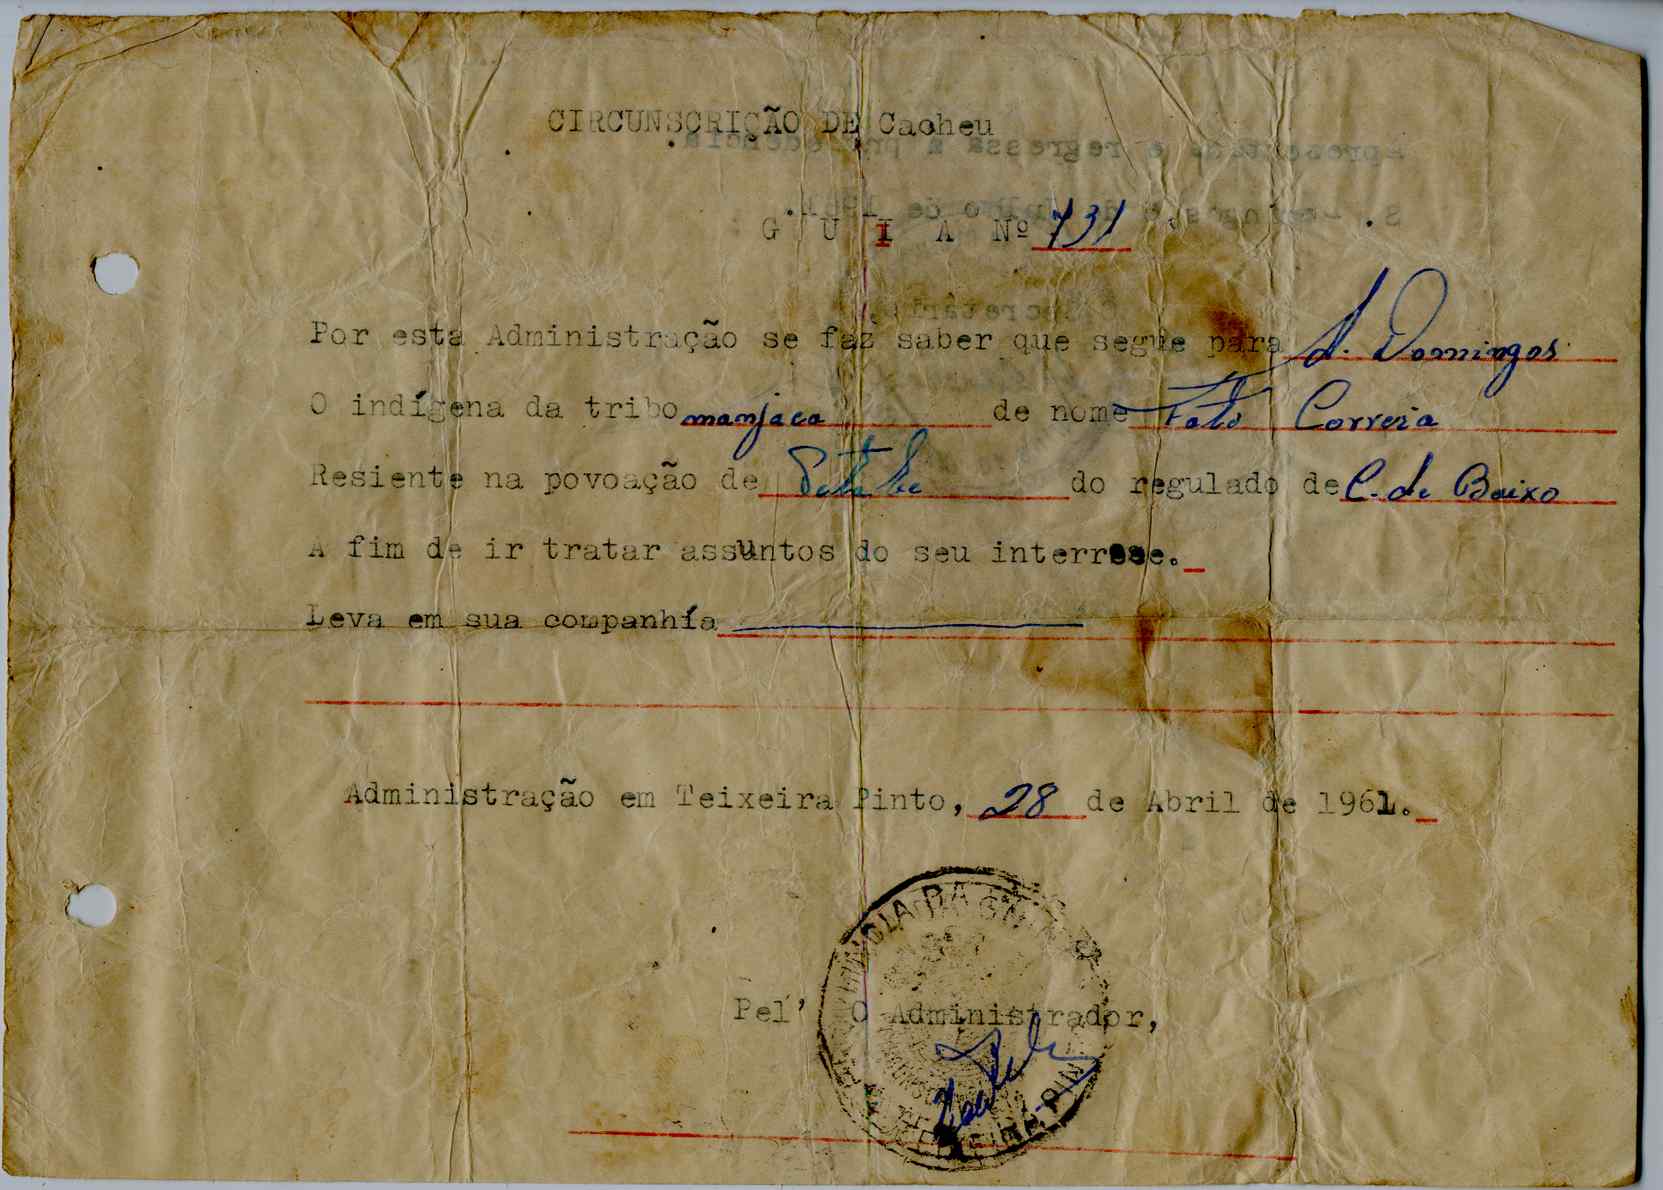 CIRCUNSCRIÇÃO DE Cacheu
G U I A Nº 731
Por esta Administração se faz saber que segue para S. Domingos
O indígena da tribo manjaca de nome Correia
Resiente na povoação de do regulado de C. de Baixo
A fim de ir tratar assuntos do seu interrese.
Leva em sua companhía
Administração em Teixeira Pinto, 28 de Abril de 1961.
Pel' O Administrador,